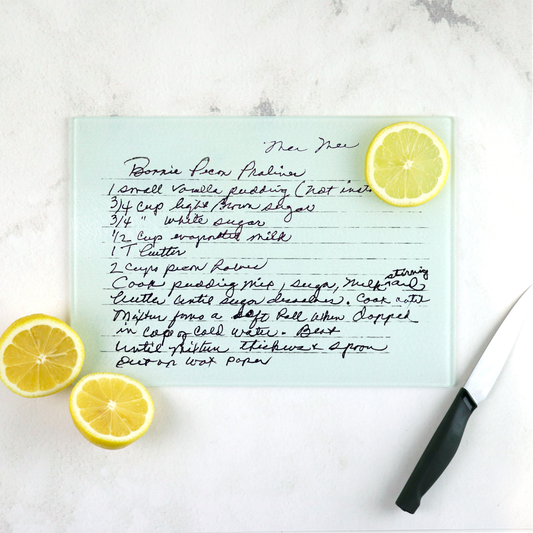 Mee Mee
Bonnie Pecon Pralines
1 small vanilla pudding (not inst
3/4 cup light Brown sugar
3/4 " white sugar
1/2 cup evaporated milk
1 T butter
2 cups pecon halves
Cook pudding mix, sugar, milk stirring and
butter until sugar dessolves. Cook until
Mixture forms a soft Ball when dropped
in cup of cold water. Beat
until mixture thickens & spoon
out on wax paper